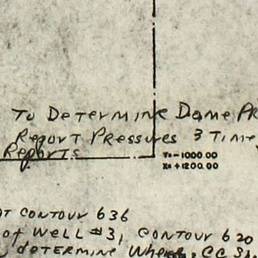 To Determine Dome PR
Report Pressures 3 Time
Reports
Y=-1000.00
X=+1200.00
AT CONTOUR 636
of WELL #3, CONTOUR 620
determine Where, CC